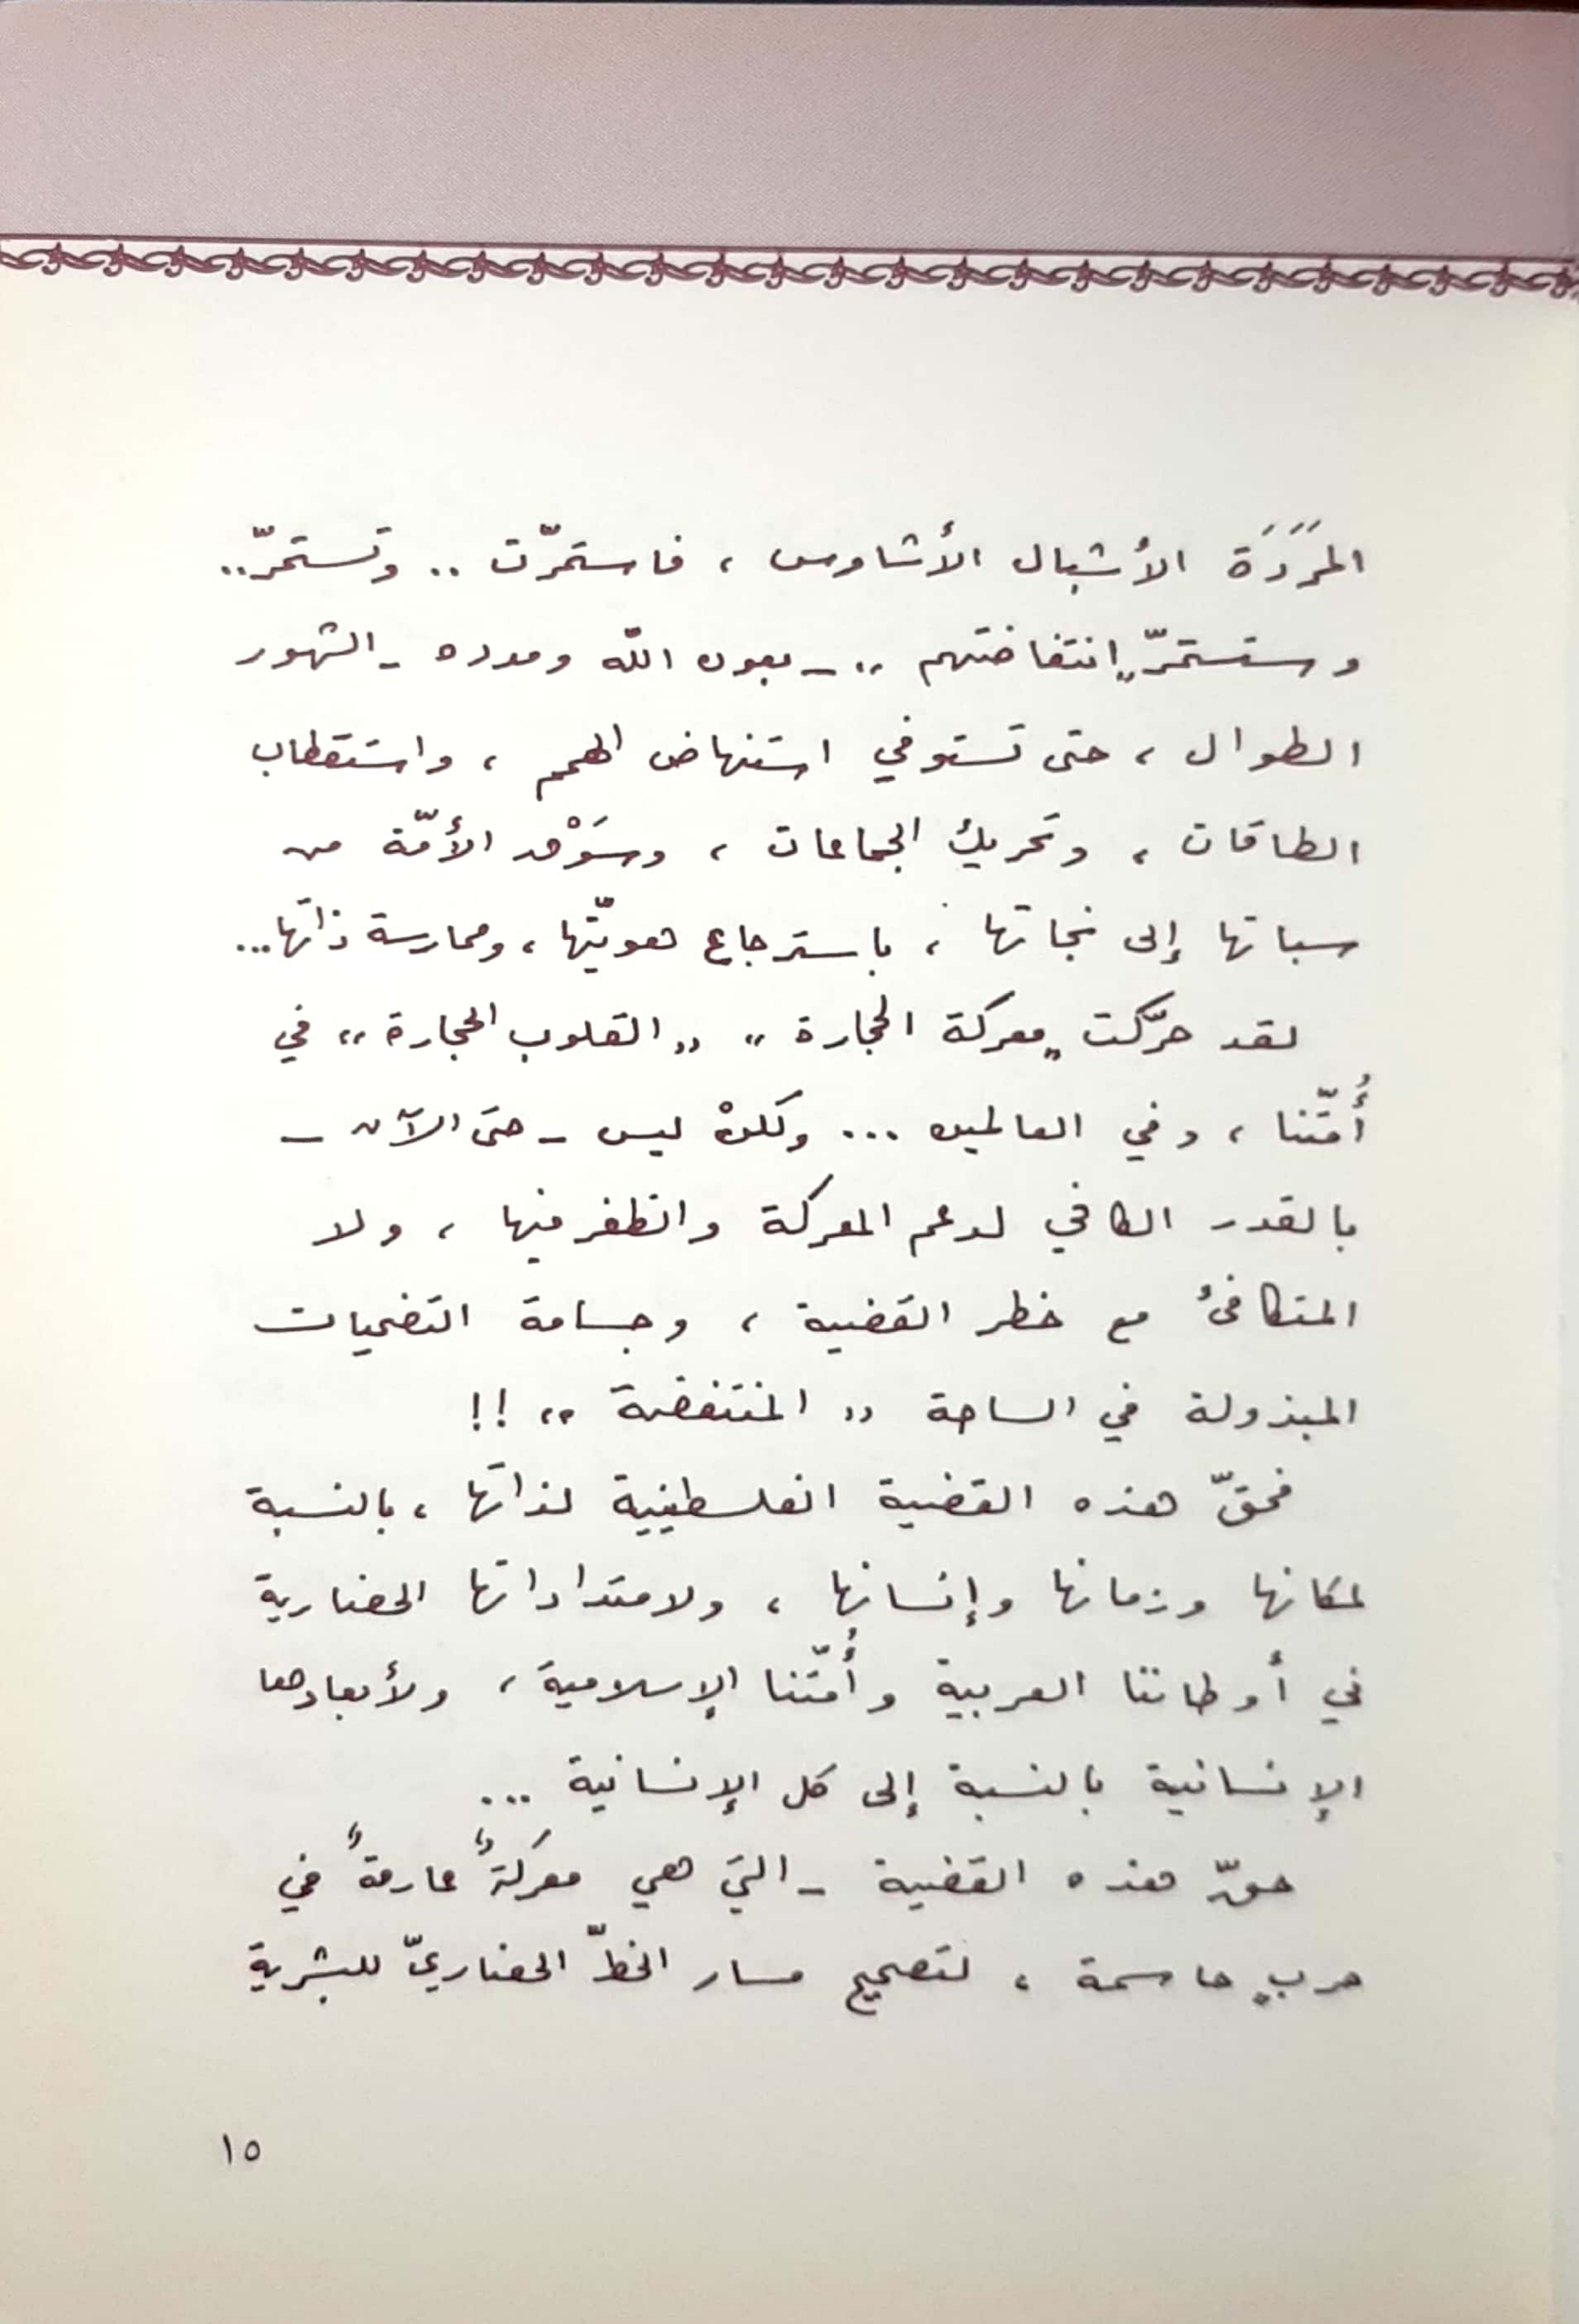 المَرَدَة الأشبال الأشاوس ، فاستمرّت .. وتستمرّ..
وستستمرّ „انتفاضتهم „ ـ بعون اللّه ومدده ـ الشهور
الطوال ، حتى تستوفي استنهاض الهمم ، واستقطاب
الطاقات ، وتحريك الجماعات ، وسَوْق الأمّة من
سباتها إلى نجاتها ، باسترجاع هويّتها ، وممارسة ذاتها...
لقد حرّكت „معركة الحجارة „ „القلوب الحجارة „ في
أُمّتنا ، وفي العالمين ... ولكنْ ليس ـ حتى الآن ـ
بالقدر الكافي لدعم المعركة والظفر فيها ، ولا
المتكافئُ مع خطر القضية ، وجسامة التضحيات
المبذولة في الساحة „ المنتفضة „ !!
فحقّ هذه القضية الفلسطينية لذاتها ، بالنسبة
لمكانها وزمانها وإنسانها ، ولامتداداتها الحضارية
في أوطاننا العربية وأُمّتنا الإسلامية ، ولأبعادها
الإنسانية بالنسبة إلى كل الإنسانية ...
حقّ هذه القضية ـ التي هي معركةٌ عارمةٌ في
حربٍ حاسمة ، لتصحيح مسار الخطّ الحضاريّ للبشرية
١٥